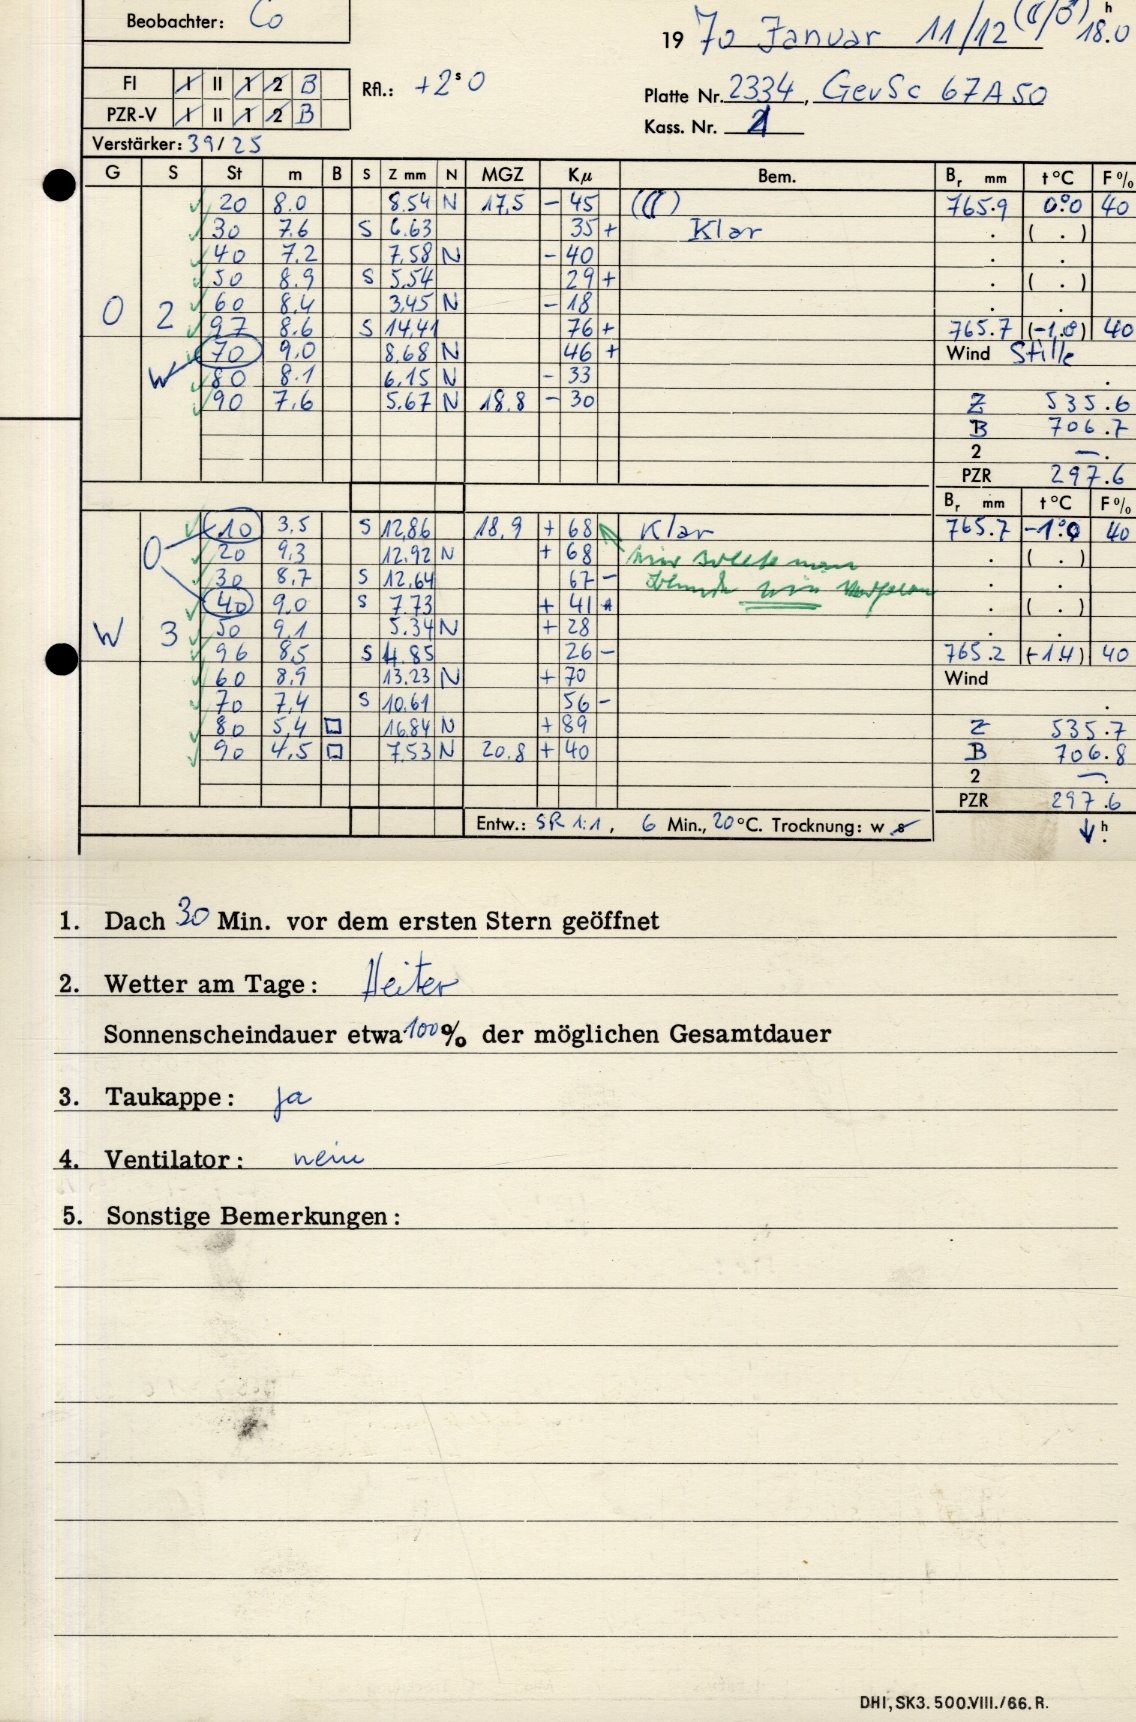 Beobachter: Co
1970 Januar 11/12 18.0 h
FI I II 1 2 B
Rfl.: +2s0
Platte Nr. 2334, GevSc 67A50
PZR-V I II 1 2 B
Kass. Nr. 1
Verstärker: 39/25
G S St m B S Z mm N MGZ Kμ Bem. Br mm t °C F %
20 8.0 8.54 N 17.5 - 45 765.9 0.0 40
30 7.6 S 6.63 35 + Klar . ( . )
40 7.2 7.58 N - 40 . .
50 8.9 S 5.54 29 + . ( . )
O 2 60 8.4 3.45 N - 18 . .
97 8.6 S 14.41 76 + 765.7 (-1.0) 40
70 9.0 8.68 N 46 + Wind Stille
W 80 8.1 6.15 N - 33 .
90 7.6 5.67 N 18.8 - 30 Z 535.6
B 706.7
2 — .
PZR 297.6
Br mm t °C F %
10 3.5 S 12.86 18.9 + 68 Klar 765.7 -1.0 40
O 20 9.3 12.92 N + 68 . ( . )
30 8.7 S 12.64 67 - . .
40 9.0 S 7.73 + 41 . ( . )
W 3 50 9.1 5.34 N + 28 . .
96 8.5 S 4.85 26 - 765.2 (-1.4) 40
60 8.9 13.23 N + 70 Wind
70 7.4 S 10.61 56 - .
80 5.4 □ 16.84 N + 89 Z 535.7
90 4.5 □ 7.53 N 20.8 + 40 B 706.8
2 — .
PZR 297.6
Entw.: SR 1:1, 6 Min., 20 °C. Trocknung: w s ↓ h
1. Dach 30 Min. vor dem ersten Stern geöffnet
2. Wetter am Tage: Heiter
Sonnenscheindauer etwa 100 % der möglichen Gesamtdauer
3. Taukappe: ja
4. Ventilator: nein
5. Sonstige Bemerkungen:
DHI, SK3. 500.VIII./66.R.